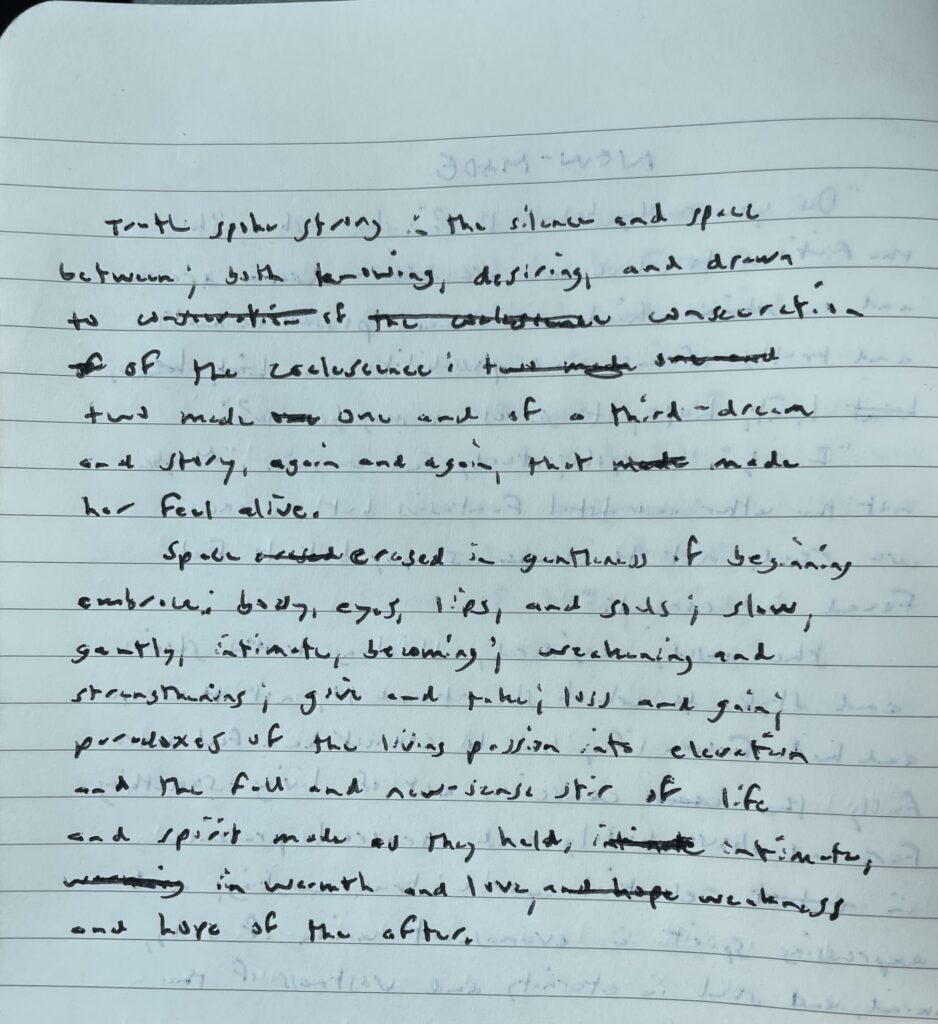 Truth spoke strong in the silence and space
between; both knowing, desiring, and drawn
to consecration of the coalescence consecration
of of the coalescence: two made one and
two made one and of a third-dream
and story, again and again, that made made
her feel alive.
Space erased erased in gentleness of beginning
embrace: body, eyes, lips, and souls; slow,
gently, intimate, becoming; weakening and
strengthening; give and take; loss and gain;
paradoxes of the living passion into elevation
and the full and new-sense stir of life
and spirit made as they held, intimate intimate,
warming in warmth and love, and hope weakness
and hope of the after.
NEW-MADE